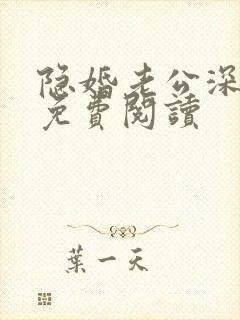 隐婚老公深
免費閱讀
葉一天